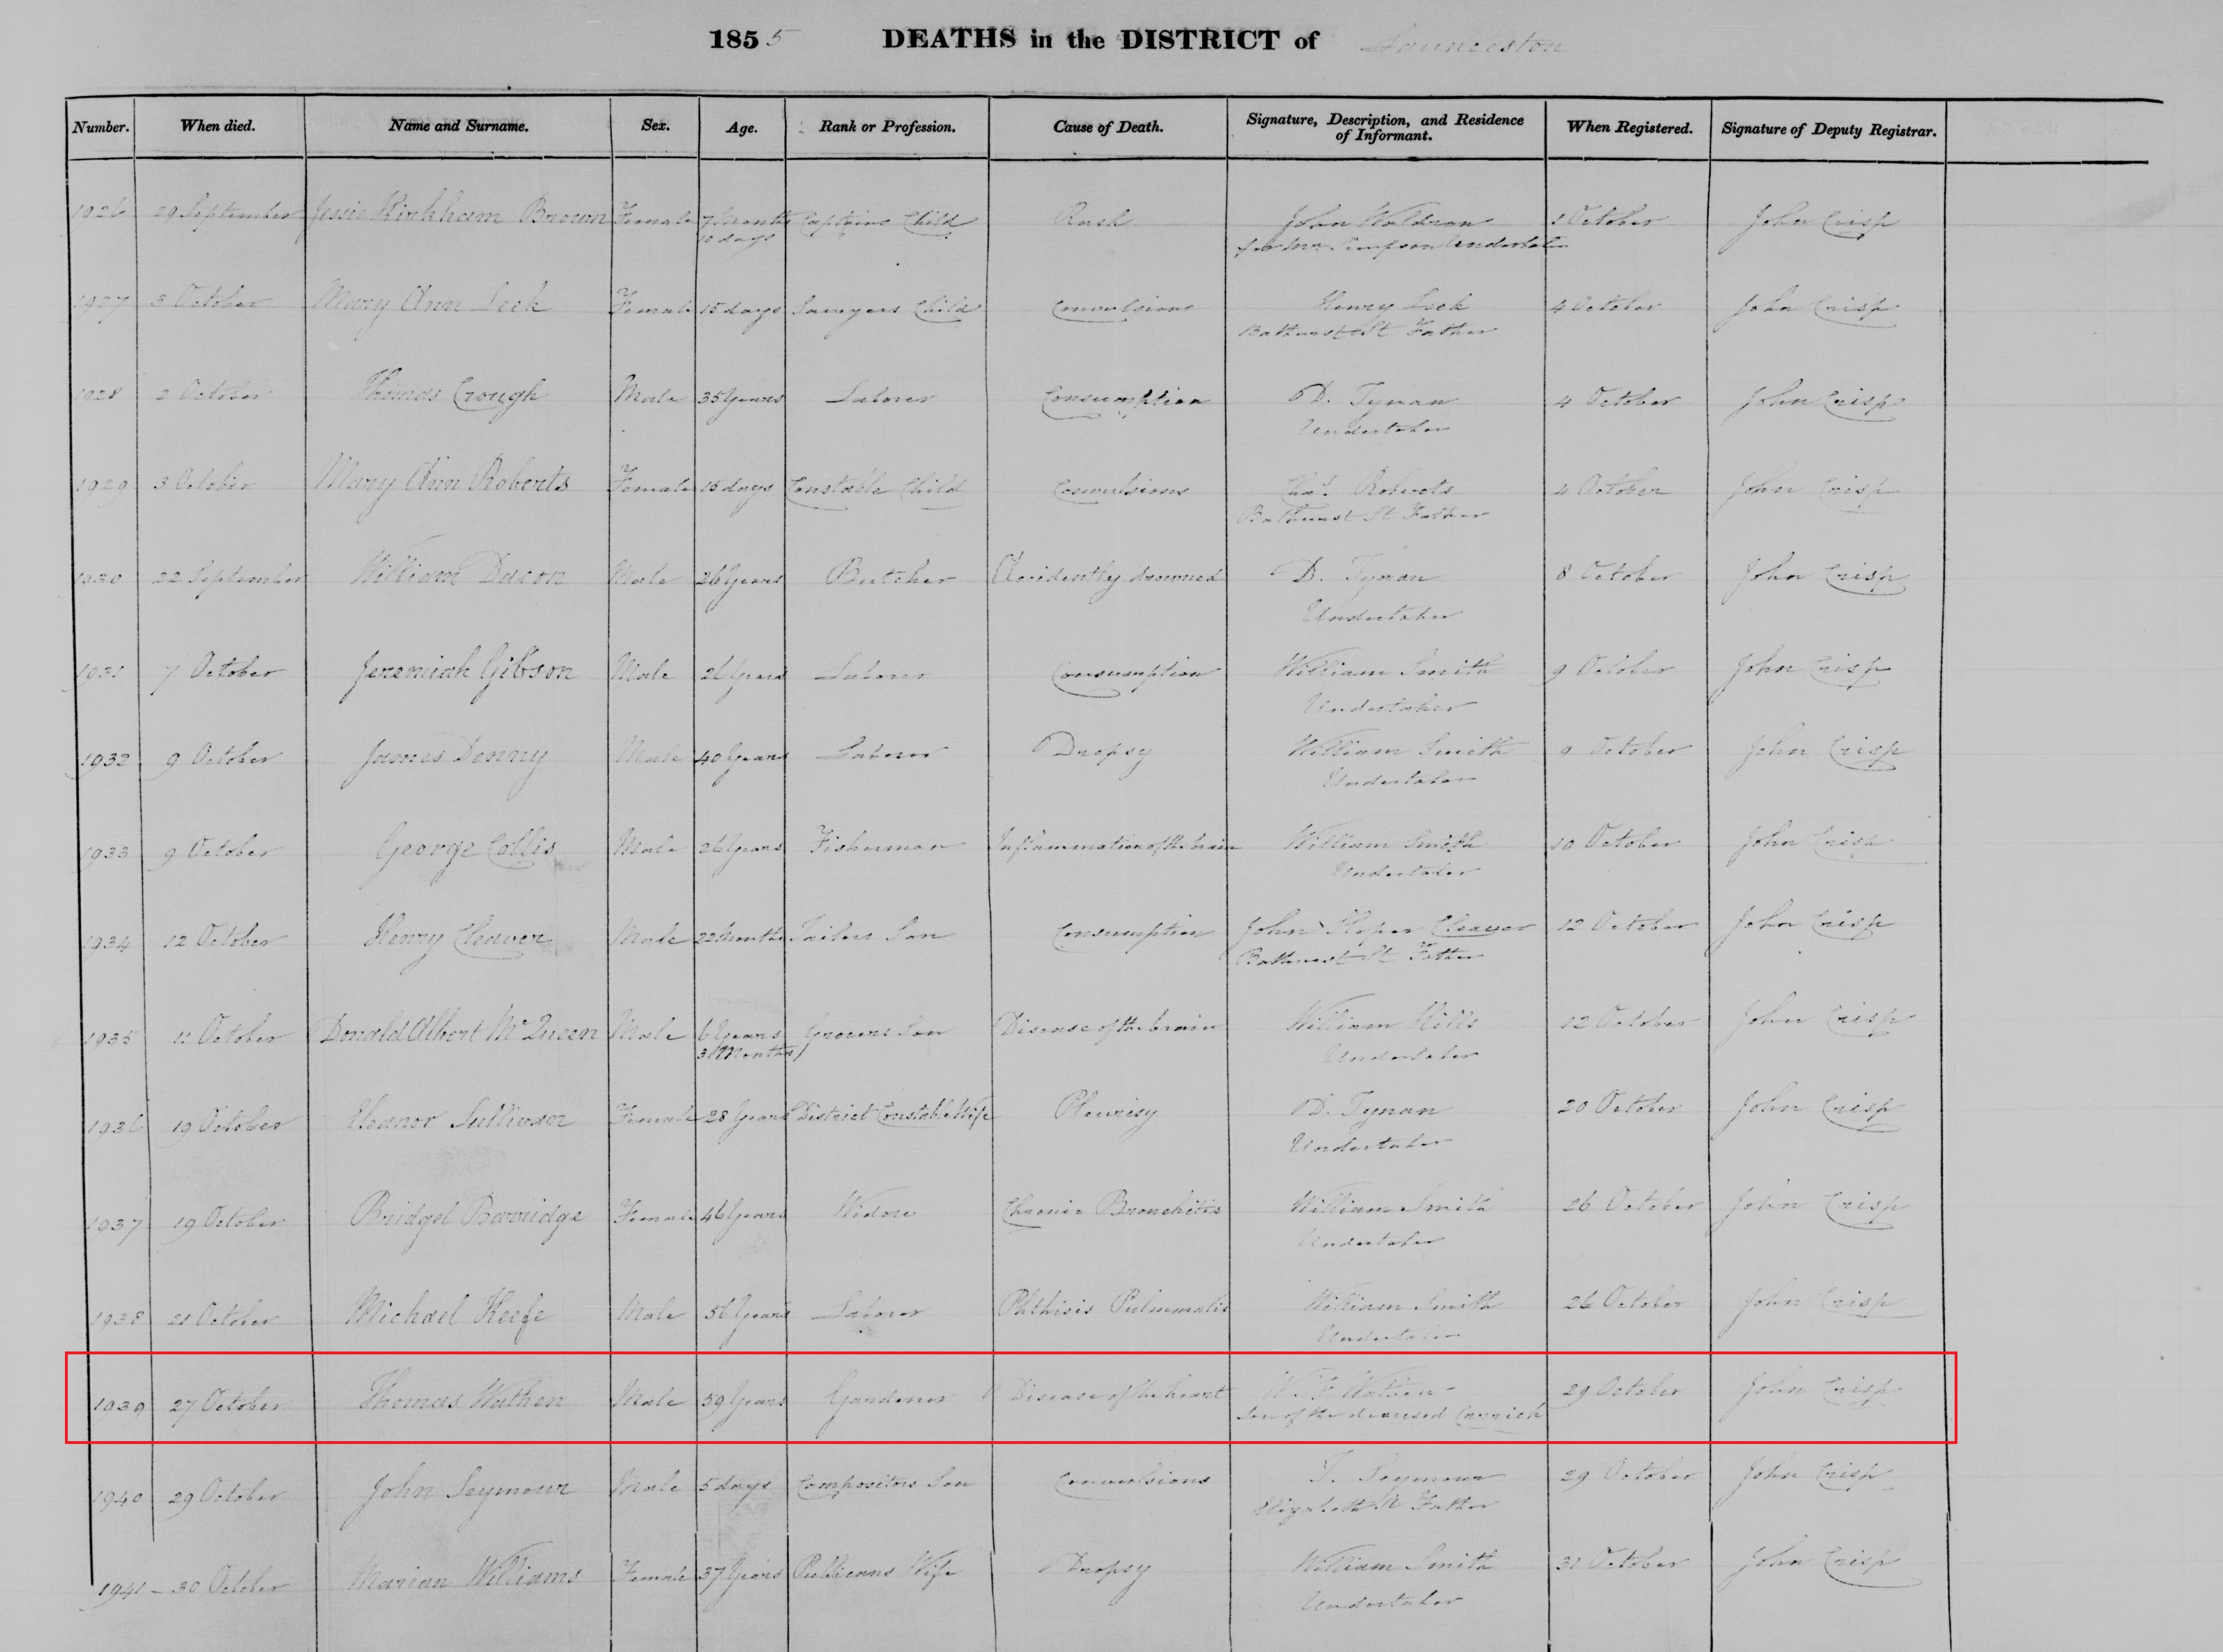 1855 DEATHS in the DISTRICT of Launceston
Number. When died. Name and Surname. Sex. Age. Rank or Profession. Cause of Death. Signature, Description, and Residence of Informant. When Registered. Signature of Deputy Registrar.
1926 29 September Jessie Kirkham Brown Female 7 Months Captains Child Rash John Waldron 1 October John Crisp
10 days for Mr. Simpson Undertaker
1927 3 October Mary Ann Leek Female 15 days Sawyers Child Convulsions Henry Leek 4 October John Crisp
Bathurst St Father
1928 2 October Thomas Crough Male 35 Years Laborer Consumption D. Tynan 4 October John Crisp
Undertaker
1929 3 October Mary Ann Roberts Female 15 days Constable Child Convulsions Chas. Roberts 4 October John Crisp
Bathurst St Father
1930 22 September William Dacon Male 26 Years Butcher Accidently drowned D. Tynan 8 October John Crisp
Undertaker
1931 7 October Jeremiah Gibson Male 26 Years Laborer Consumption William Smith 9 October John Crisp
Undertaker
1932 9 October James Denny Male 40 Years Laborer Dropsy William Smith 9 October John Crisp
Undertaker
1933 9 October George Collis Male 26 Years Fisherman Inflammation of the brain William Smith 10 October John Crisp
Undertaker
1934 12 October Henry Cleaver Male 22 Months Tailors Son Consumption John Sloper Cleaver 12 October John Crisp
Bathurst St Father
1935 11 October Donald Albert McQueen Male 6 Years Grocers Son Disease of the brain William Hills 12 October John Crisp
3 Months Undertaker
1936 19 October Eleanor Sullivan Female 28 Years District Constable Wife Pleurisy D. Tynan 20 October John Crisp
Undertaker
1937 19 October Bridget Barridge Female 46 Years Widow Chronic Bronchitis William Smith 26 October John Crisp
Undertaker
1938 21 October Michael Keefe Male 56 Years Laborer Phthisis Pulmonalis William Smith 26 October John Crisp
Undertaker
1939 27 October Thomas Wathen Male 59 Years Gardener Disease of the heart W. F. Wathen 29 October John Crisp
Son of the deceased Carrick
1940 29 October John Seymour Male 5 days Compositors Son Convulsions T. Seymour 29 October John Crisp
Elizabeth St Father
1941 30 October Marian Williams Female 37 Years Publicans Wife Dropsy William Smith 31 October John Crisp
Undertaker